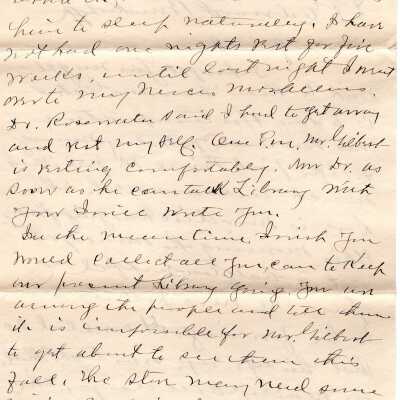 him to sleep naturaley. I have
not had one nights rest for five
weeks, until last night I went
over to my Neices
Dr. Rosewater said I had to get away
and rest my self. One P.m., Mr. Gilbert
is resting comfortably. Now Dr. as
soon as he can talk Library with
you I will write you.
In the meantime, I wish you
would collect all you, can to keep
our present Library going. You are
among the people and tell them
it is impossible for Mr. Gilbert
to get about to see them this
fall. The stove may need some